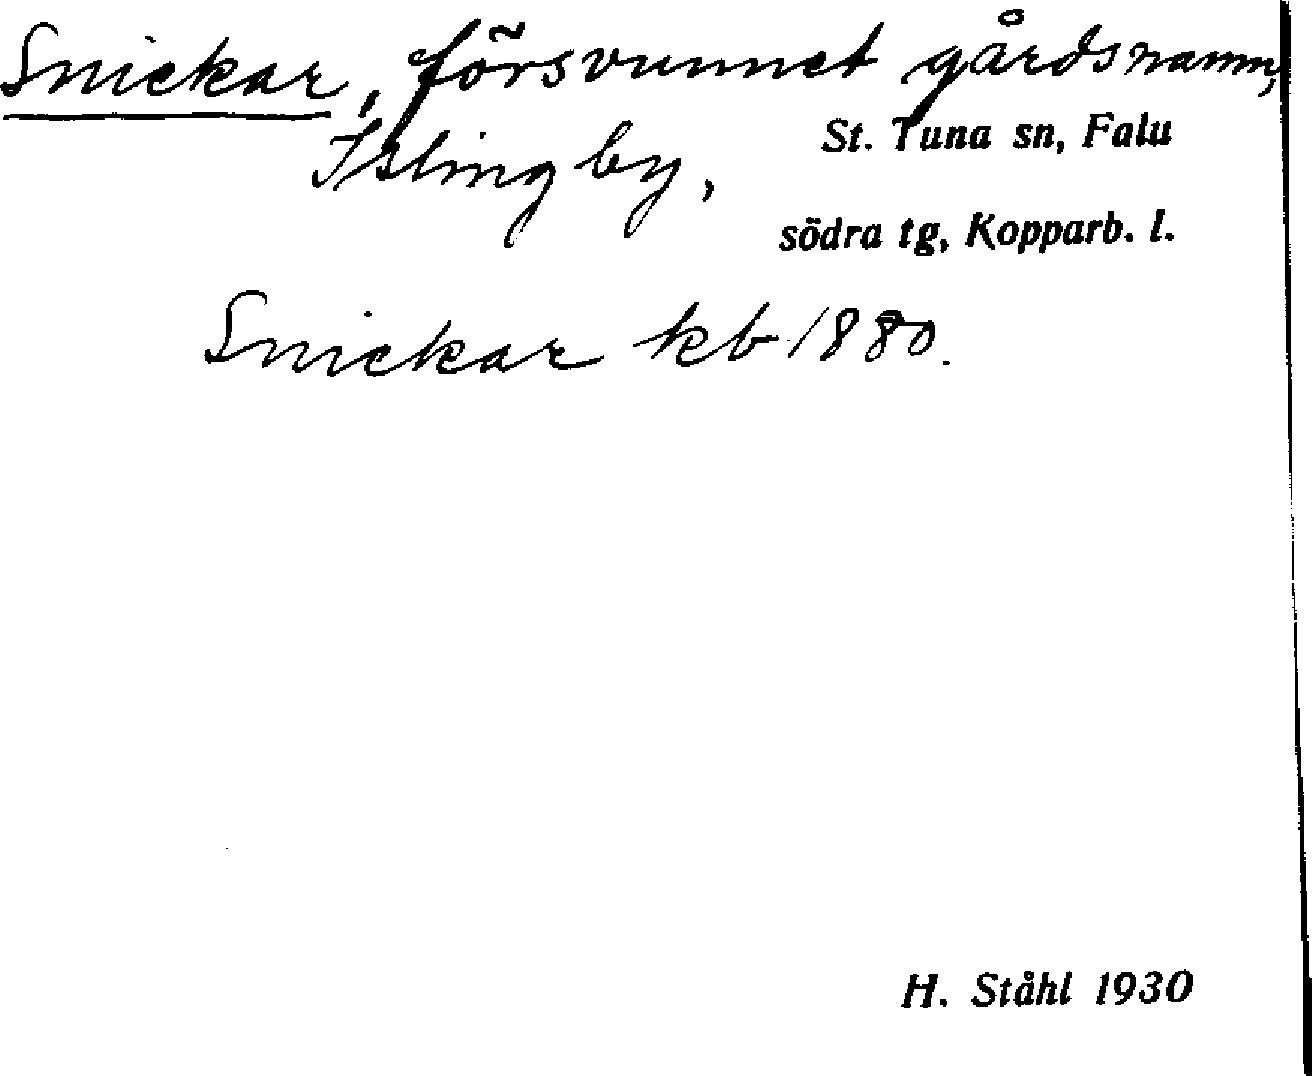 Snickar, försvunnet gårdsnamn,
Islingby, St. Tuna sn, Falu
södra tg, Kopparb. l.
Snickar kb 1880.
H. Ståhl 1930